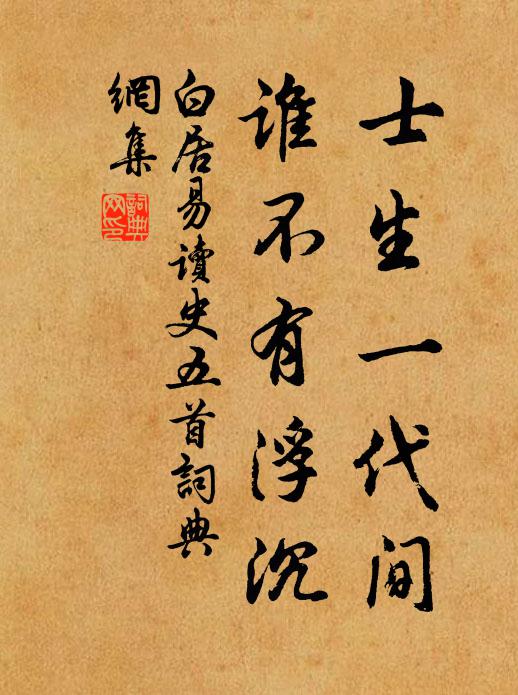 士生一代间
谁不有浮沉
白居易读史五首词典
網集
词典
网印